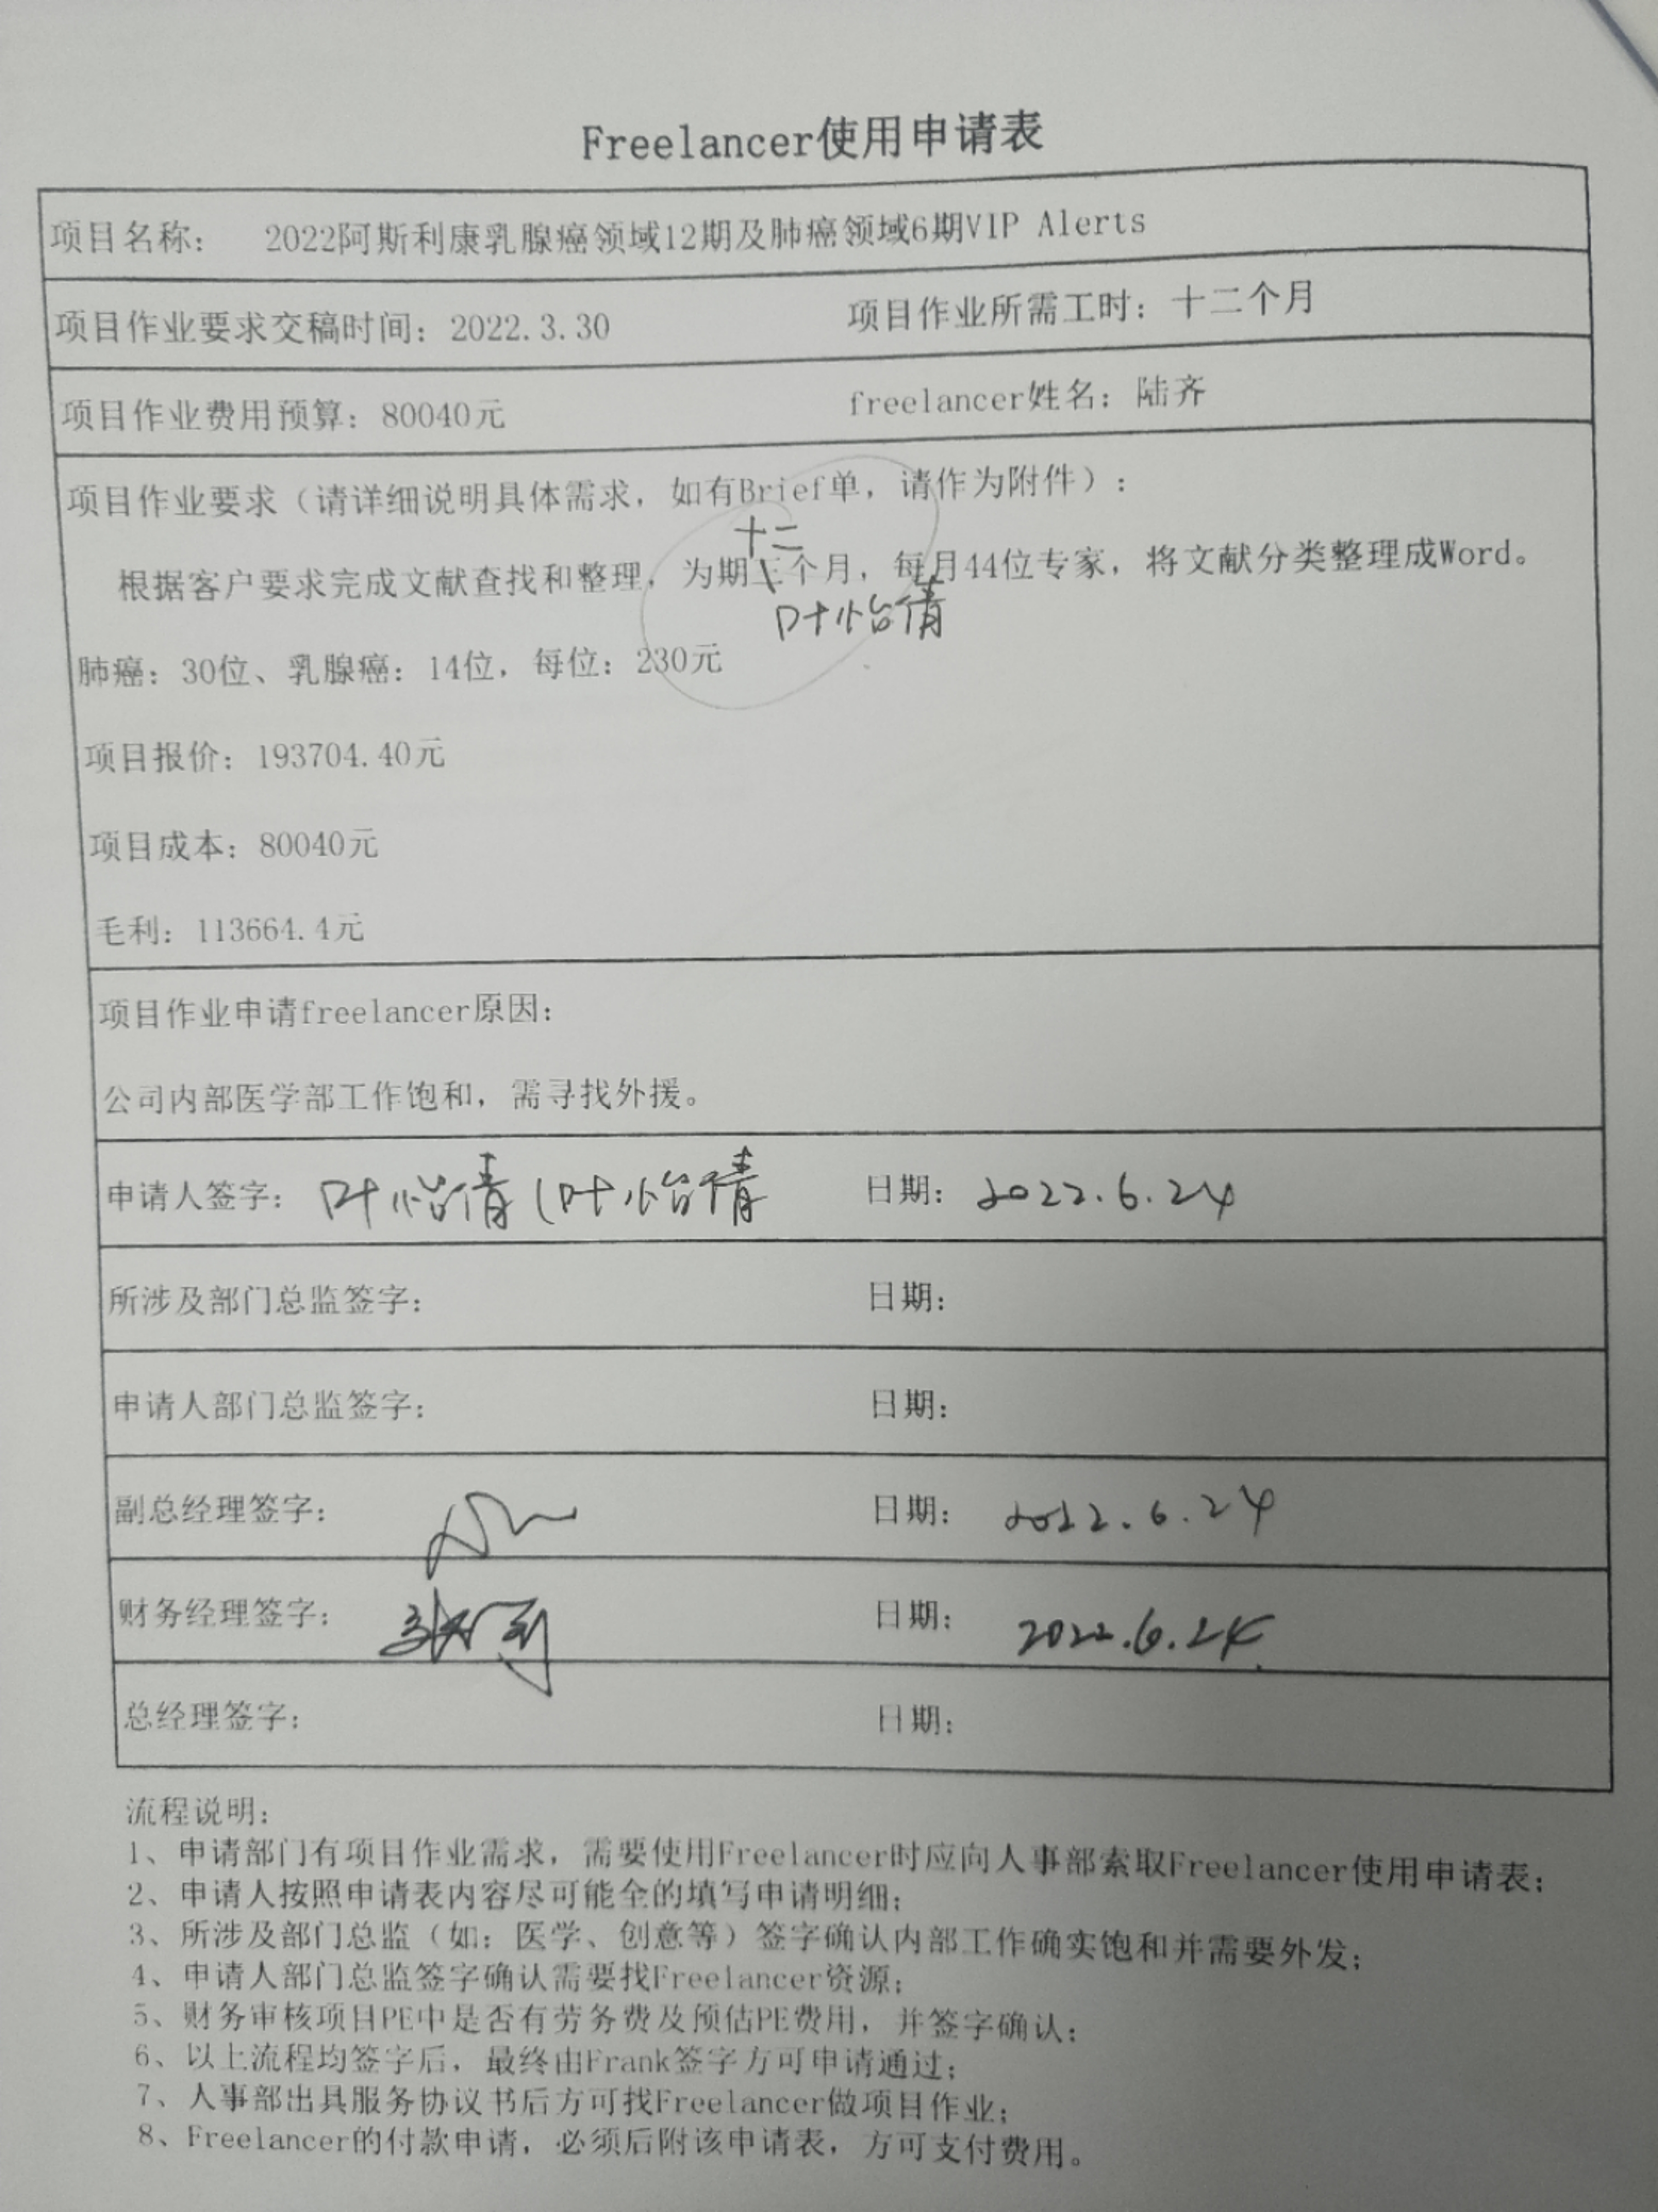 Freelancer使用申请表
项目名称： 2022阿斯利康乳腺癌领域12期及肺癌领域6期VIP Alerts
项目作业要求交稿时间：2022.3.30 项目作业所需工时：十二个月
项目作业费用预算：80040元 freelancer姓名：陆齐
项目作业要求（请详细说明具体需求，如有Brief单，请作为附件）：
十二
根据客户要求完成文献查找和整理，为期三个月，每月44位专家，将文献分类整理成Word。
叶怡倩
肺癌：30位、乳腺癌：14位，每位：230元
项目报价：193704.40元
项目成本：80040元
毛利：113664.4元
项目作业申请freelancer原因：
公司内部医学部工作饱和，需寻找外援。
申请人签字：叶怡倩（叶怡倩 日期：2022.6.24
所涉及部门总监签字： 日期：
申请人部门总监签字： 日期：
副总经理签字： 日期：2022.6.24
财务经理签字： 日期：2022.6.24
总经理签字： 日期：
流程说明：
1、申请部门有项目作业需求，需要使用Freelancer时应向人事部索取Freelancer使用申请表；
2、申请人按照申请表内容尽可能全的填写申请明细；
3、所涉及部门总监（如：医学、创意等）签字确认内部工作确实饱和并需要外发；
4、申请人部门总监签字确认需要找Freelancer资源；
5、财务审核项目PE中是否有劳务费及预估PE费用，并签字确认；
6、以上流程均签字后，最终由Frank签字方可申请通过；
7、人事部出具服务协议书后方可找Freelancer做项目作业；
8、Freelancer的付款申请，必须后附该申请表，方可支付费用。